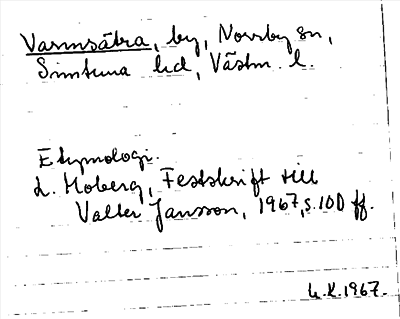 Varmsätra, by, Norrby sn,
Simtuna hd, Västm. l.
Etymologi.
L. Moberg, Festskrift till
Valter Jansson, 1967, s. 100 ff.
K. 1967.